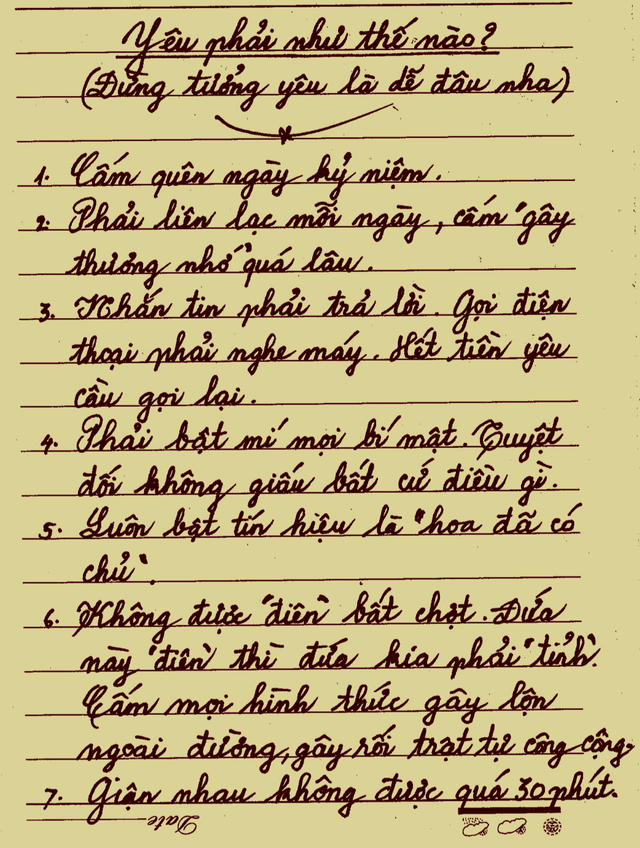 Yêu phải như thế nào?
(Đừng tưởng yêu là dễ đâu nha)
1. Cấm quên ngày kỷ niệm.
2. Phải liên lạc mỗi ngày, cấm "gây
thương nhớ" quá lâu.
3. Nhắn tin phải trả lời. Gọi điện
thoại phải nghe máy. Hết tiền yêu
cầu gọi lại.
4. Phải bật mí mọi bí mật. Tuyệt
đối không giấu bất cứ điều gì.
5. Luôn bật tín hiệu là "hoa đã có
chủ".
6. Không được "điên" bất chợt. Đứa
này "điên" thì đứa kia phải "tỉnh".
Cấm mọi hình thức gây lộn
ngoài đường, gây rối trật tự công cộng.
7. Giận nhau không được quá 30 phút.
Date